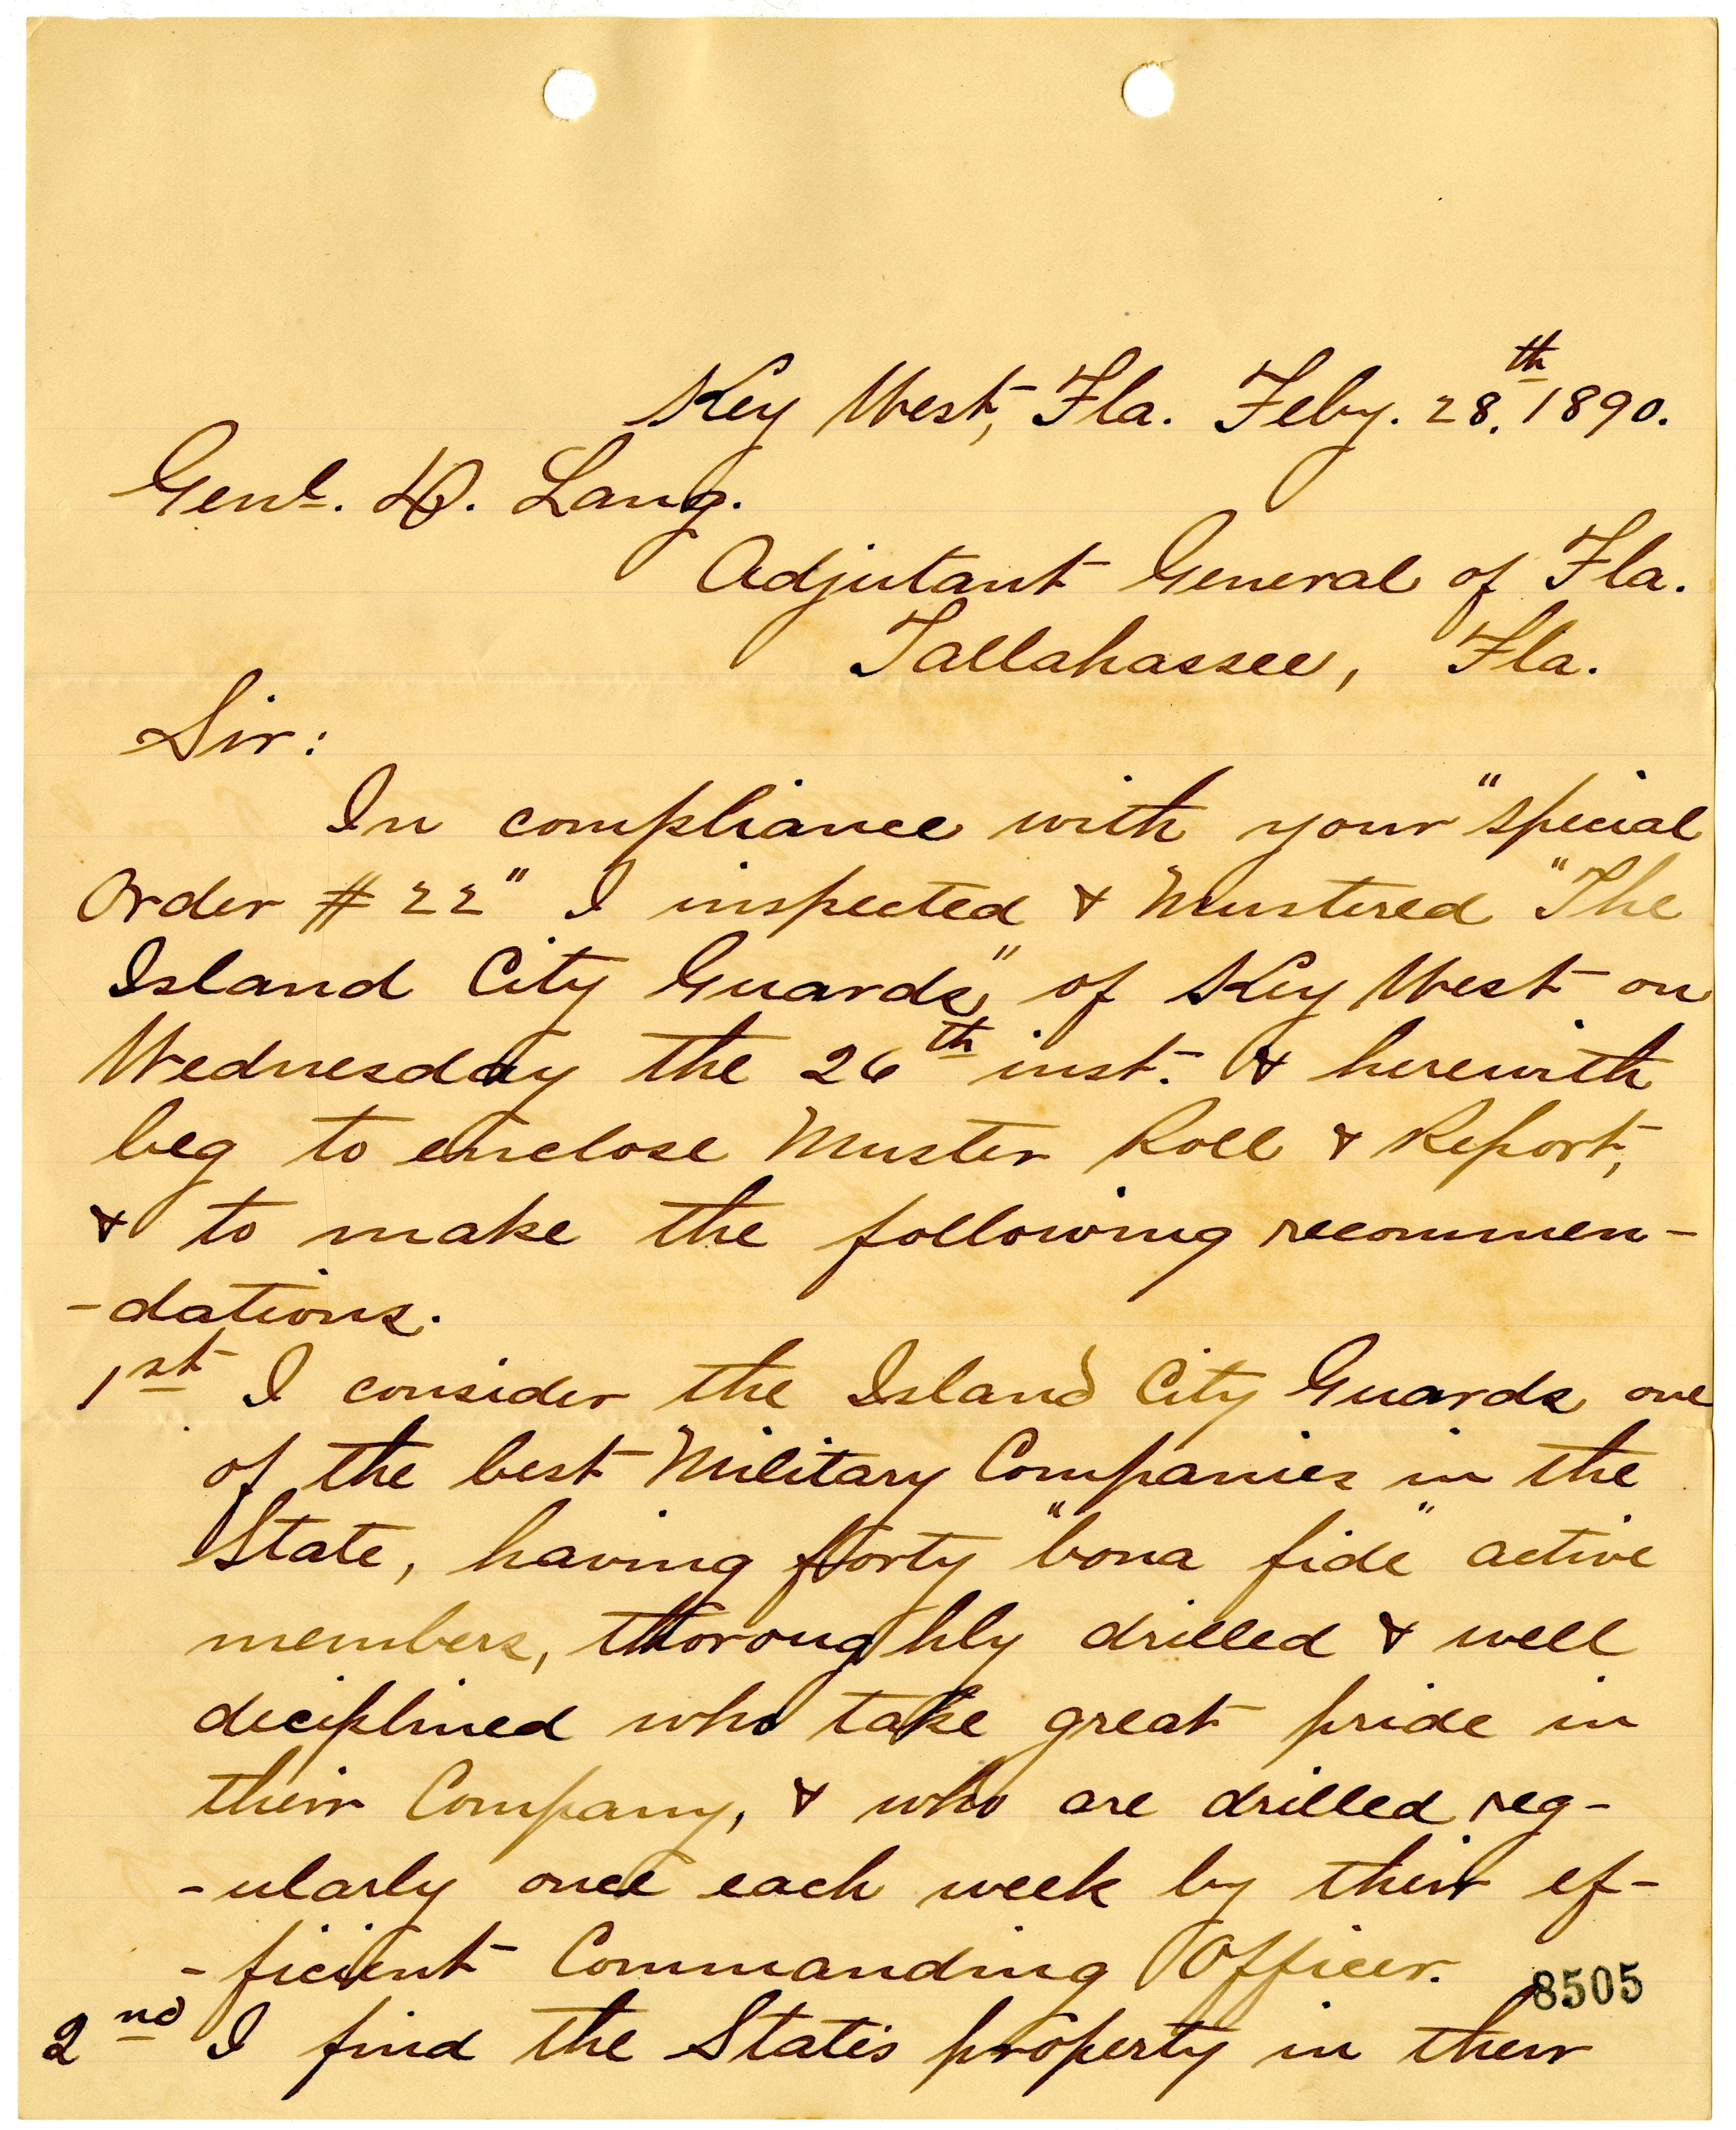 Key West, Fla. Feby. 28th. 1890.
Genl. D. Lang.
Adjutant General of Fla.
Tallahassee, Fla.
Sir:
In compliance with your "special
Order # 22" I inspected & Mustered "The
Island City Guards" of Key West on
Wednesday the 26th inst. & herewith
beg to enclose Muster Roll & Report,
& to make the following recommen-
-dations.
1st I consider the Island City Guards one
of the best Military Companies in the
State, having forty "bona fide" active
members, thoroughly drilled & well
deciplined who take great pride in
their Company, & who are drilled reg-
-ularly once each week by their ef-
-ficient Commanding Officer.
8505
2nd I find the State's property in their